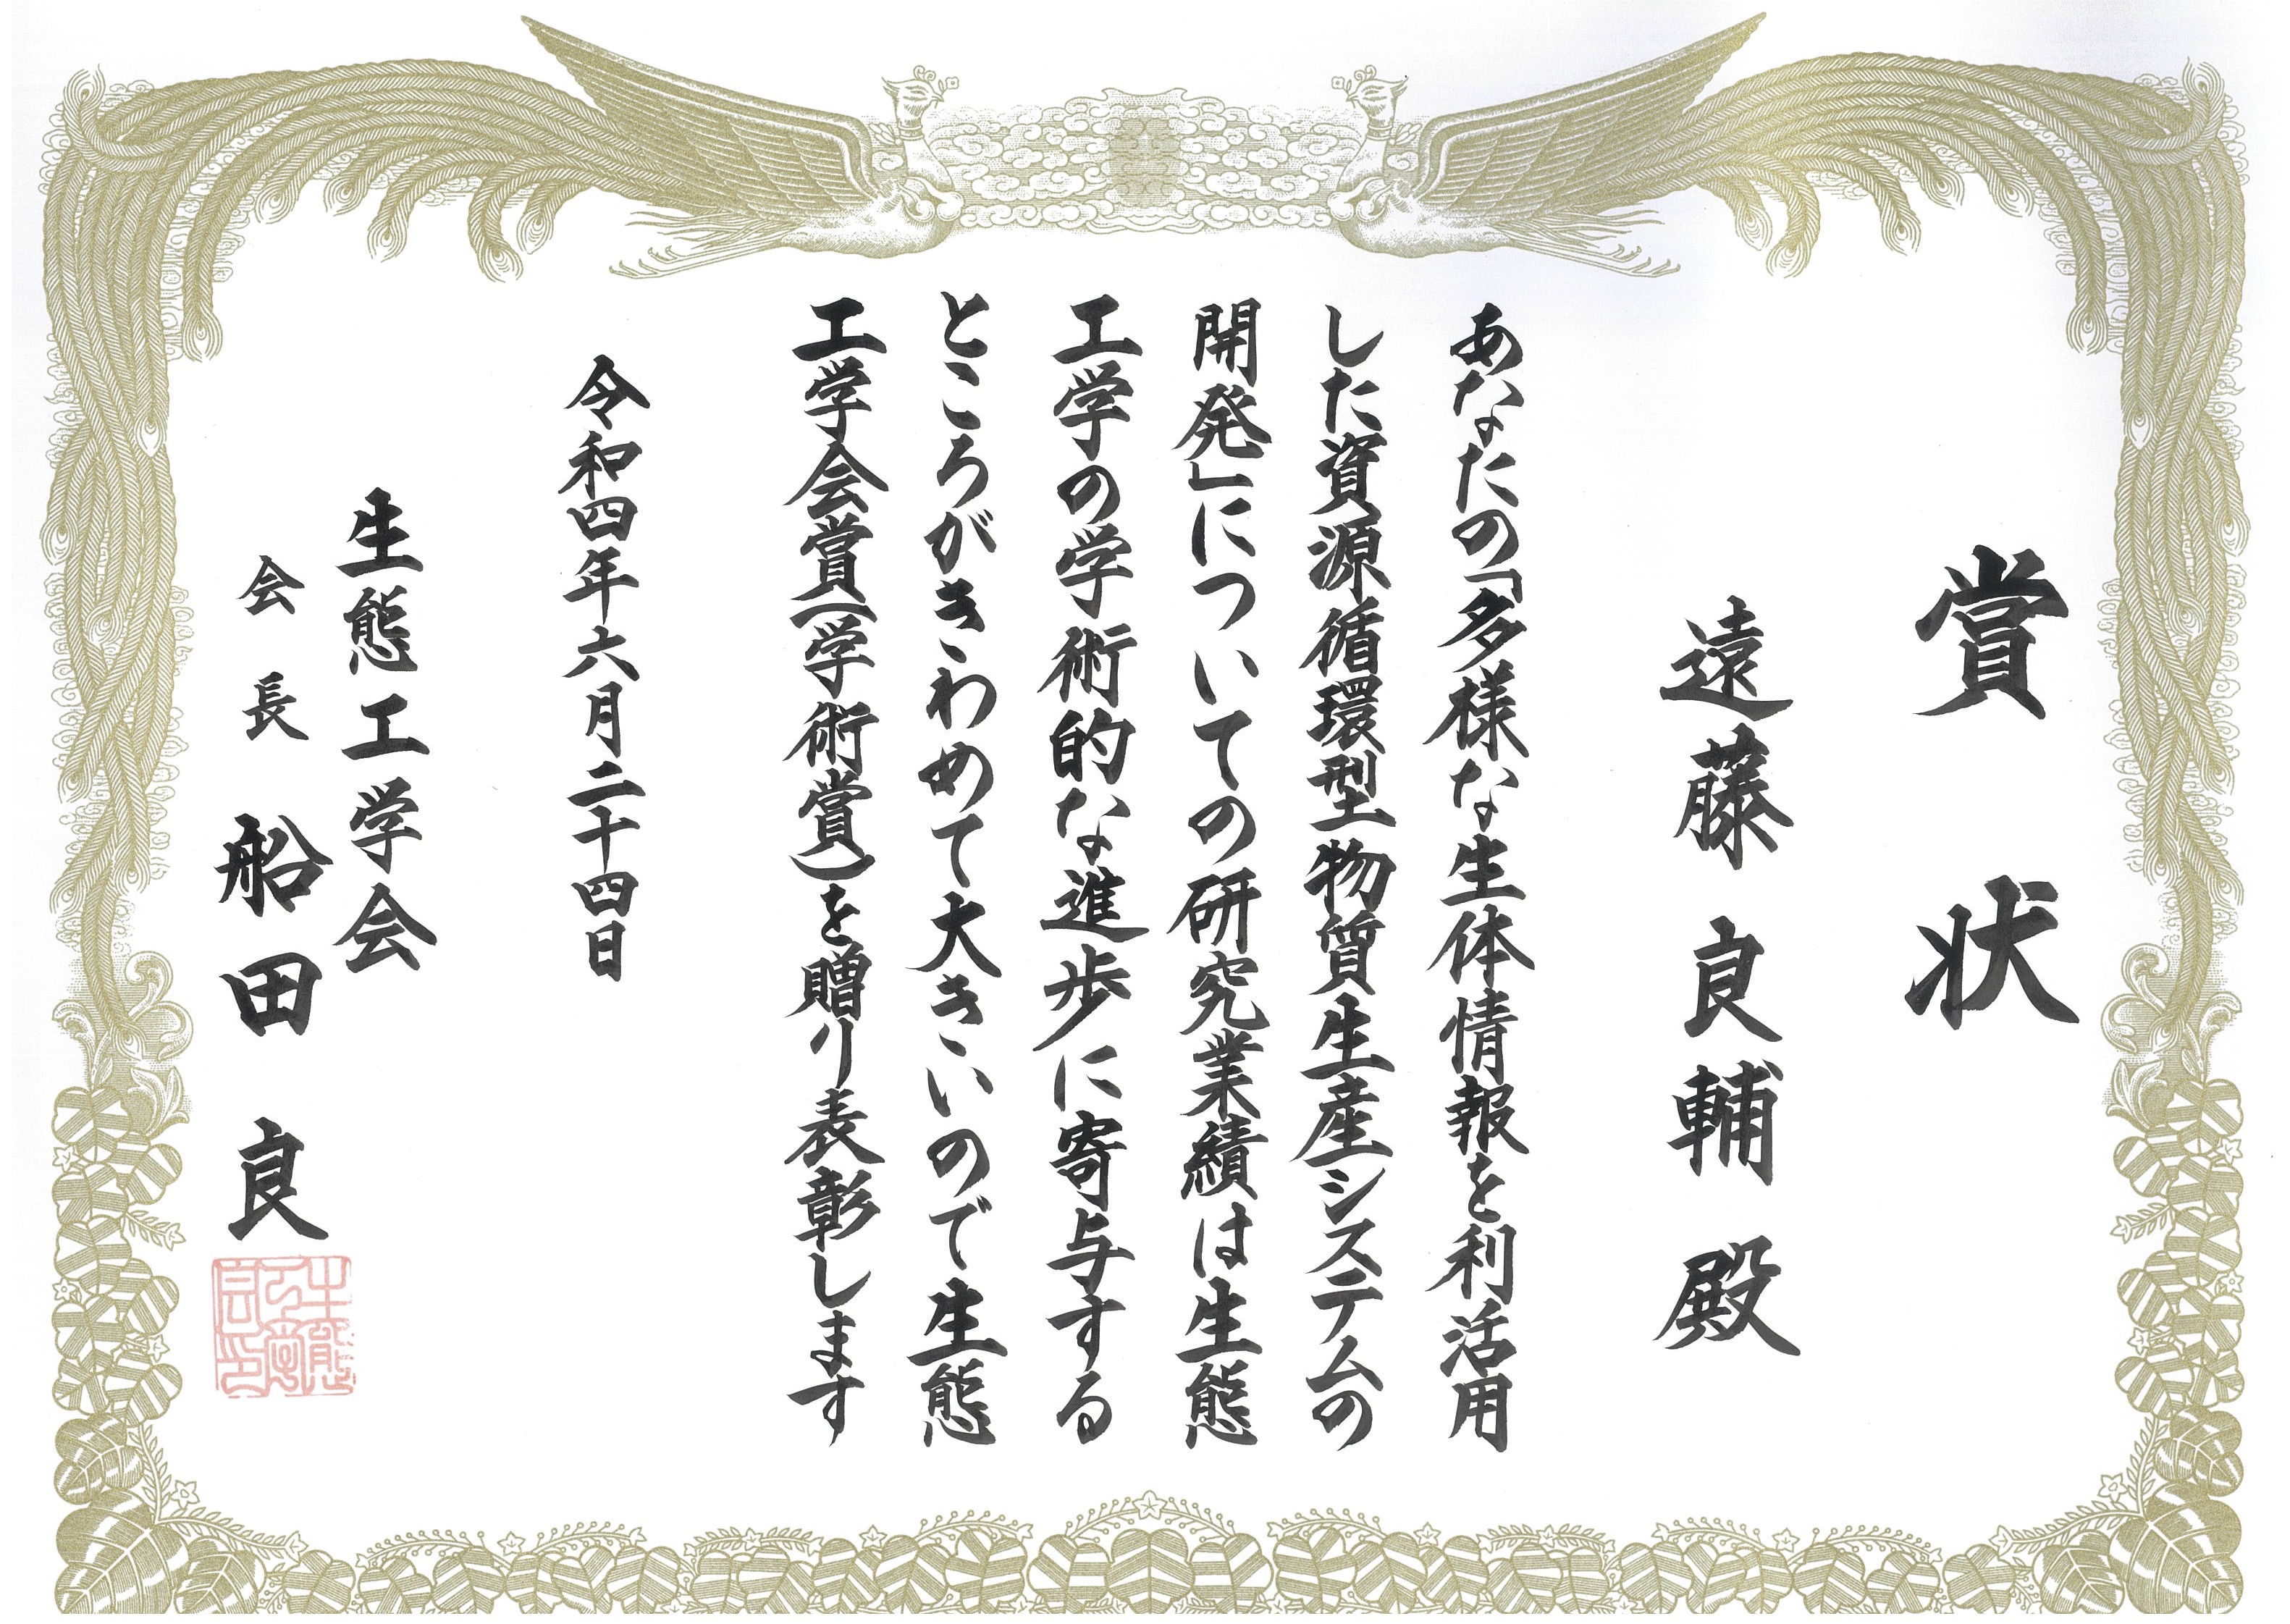 賞状
遠藤良輔殿
あなたの「多様な生体情報を利活用
した資源循環型物質生産システムの
開発」についての研究業績は生態
工学の学術的な進歩に寄与する
ところがきわめて大きいので生態
工学会賞(学術賞)を贈り表彰します
令和四年六月二十四日
生態工学会
会長 船田良
生態工学会印